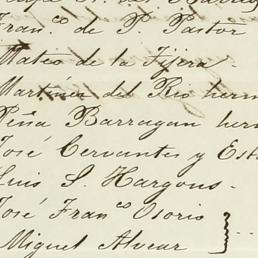 Fran.co de P. Pastor
Mateo de la Tijera
Martinez del Rio herm
Peña Barragan herm
José Cervantes y Est
Luis S. Hargous.
José Fran.co Osoris
Miguel Alvear